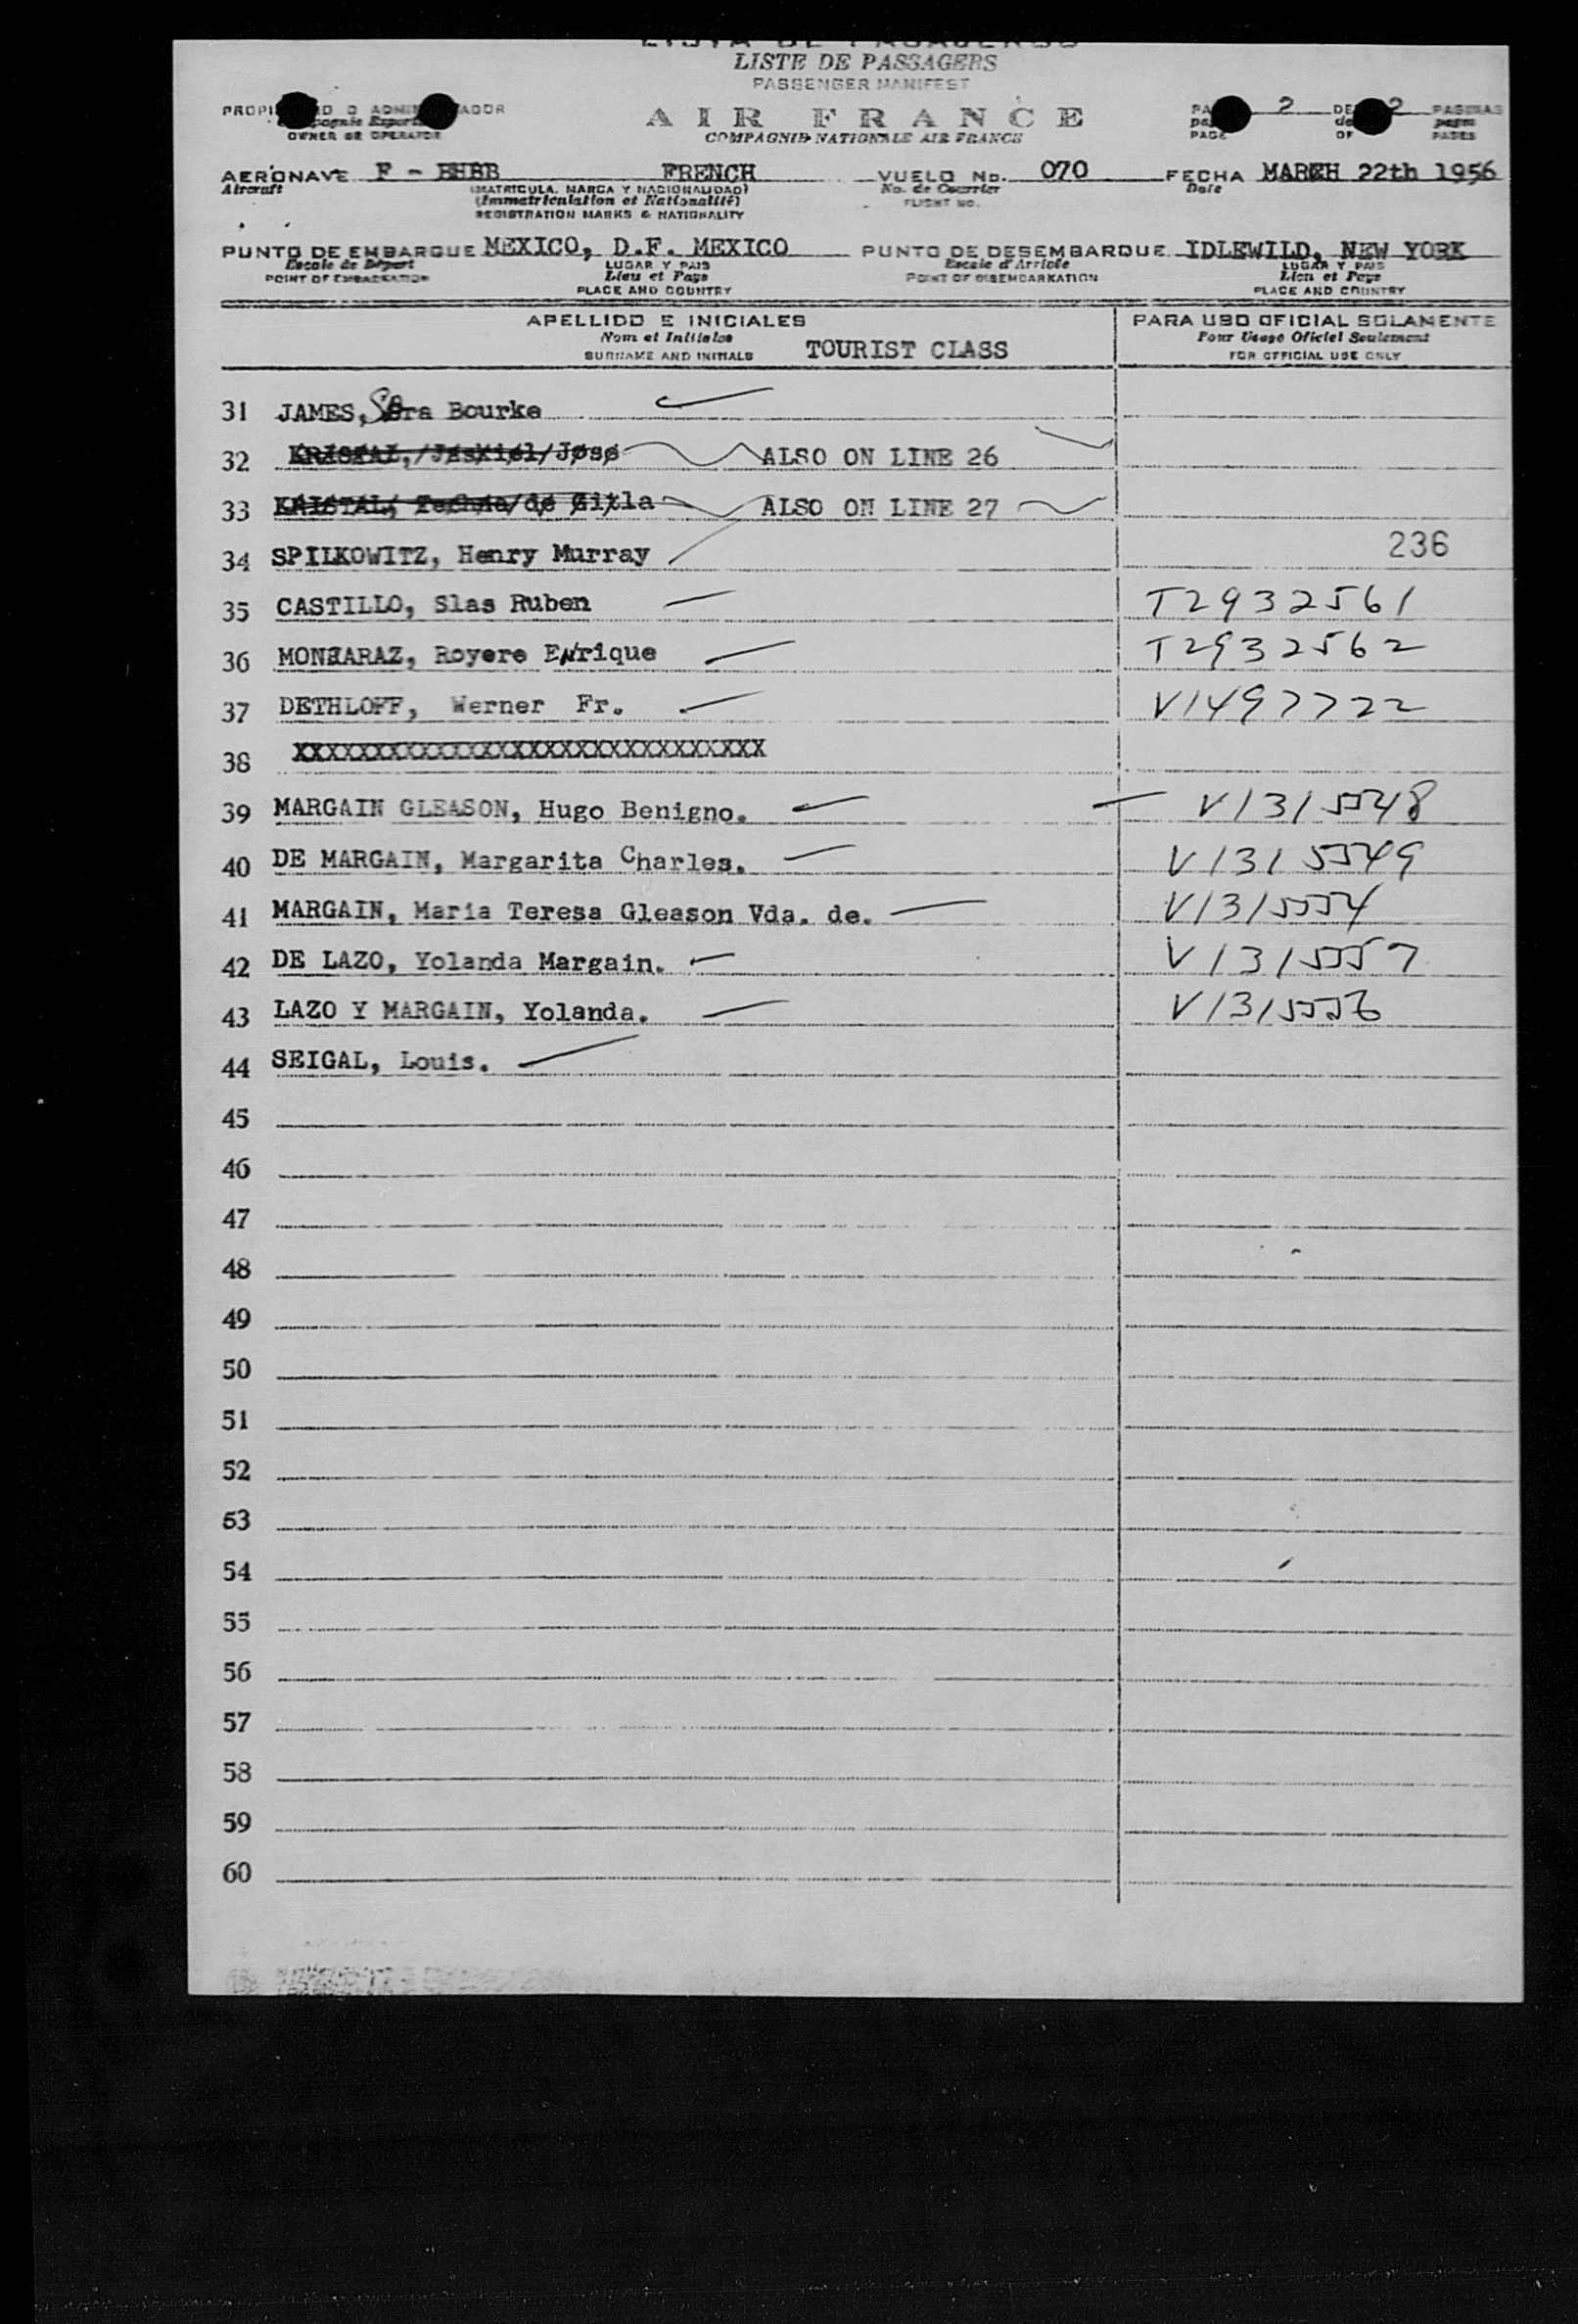 LISTA DE PASAGEROS
LISTE DE PASSAGERS
PASSENGER MANIFEST
AIR FRANCE
COMPAGNIE NATIONALE AIR FRANCE
OWNER OR OPERATOR
2 2 PAGINAS
PAGE OF PAGES
AERONAVE F - BHBB FRENCH VUELO No. 070 FECHA MARCH 22th 1956
Aircraft (MATRICULA, MARCA Y NACIONALIDAD) No. de Courrier Date
(Immatriculation et Nationalité) FLIGHT NO.
REGISTRATION MARKS & NATIONALITY
PUNTO DE EMBARQUE MEXICO, D.F. MEXICO PUNTO DE DESEMBARQUE IDLEWILD, NEW YORK
Escale de Départ LUGAR Y PAIS Escale d'Arrivée LUGAR Y PAIS
POINT OF EMBARKATION Lieu et Pays POINT OF DISEMBARKATION Lieu et Pays
PLACE AND COUNTRY PLACE AND COUNTRY
APELLIDO E INICIALES PARA USO OFICIAL SOLAMENTE
Nom et Initiales Pour Usage Officiel Seulement
SURNAME AND INITIALS TOURIST CLASS FOR OFFICIAL USE ONLY
31 JAMES, Sara Bourke
32 KRISTAL, Jose ALSO ON LINE 26
33 KRISTAL, de Gitla ALSO ON LINE 27
34 SPILKOWITZ, Henry Murray 236
35 CASTILLO, Slas Ruben T2932561
36 Royere ENrique T2932562
37 DETHLOFF, Werner Fr. V1497722
38 XXXXXXXXXXXXXXXXXXXXXXXXXXXXXX
39 MARGAIN GLEASON, Hugo Benigno. V1315548
40 DE MARGAIN, Margarita Charles. V1315549
41 MARGAIN, Maria Teresa Gleason Vda. de. V1315554
42 DE LAZO, Yolanda Margain. V1315557
43 LAZO Y MARGAIN, Yolanda.
44 SEIGAL, Louis.
45
46
47
48
49
50
51
52
53
54
55
56
57
58
59
60